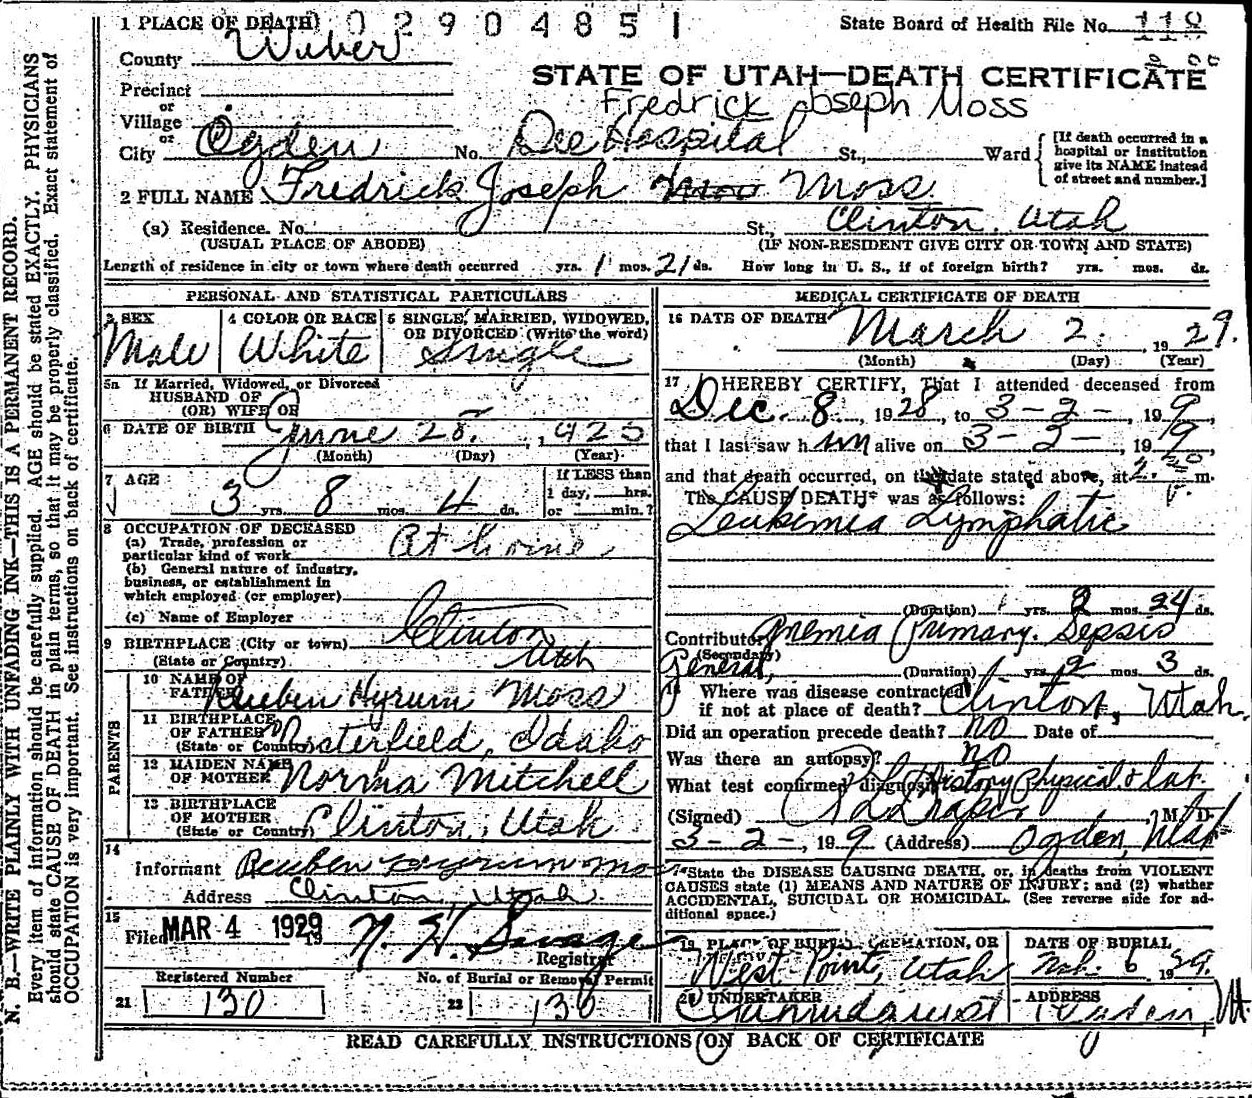 1 PLACE OF DEATH) 02904851 State Board of Health File No. 118
County Weber
STATE OF UTAH—DEATH CERTIFICATE
Precinct
or
Village
Fredrick Joseph Moss
or
City Ogden No. Dee Hospital St., Ward
[If death occurred in a hospital or institution give its NAME instead of street and number.]
2 FULL NAME Fredrick Joseph Moss
(a) Residence. No. St., Clinton, Utah
(USUAL PLACE OF ABODE) (IF NON-RESIDENT GIVE CITY OR TOWN AND STATE)
Length of residence in city or town where death occurred yrs. 1 mos. 21 ds. How long in U. S., if of foreign birth? yrs. mos. ds.
PERSONAL AND STATISTICAL PARTICULARS
3 SEX 4 COLOR OR RACE 5 SINGLE, MARRIED, WIDOWED,
OR DIVORCED (Write the word)
Male White Single
5a If Married, Widowed, or Divorced
HUSBAND OF
(OR) WIFE OF
6 DATE OF BIRTH June 28, 1925
(Month) (Day) (Year)
7 AGE 3 yrs. 8 mos. 4 ds.
If LESS than
1 day, hrs.
or min.?
8 OCCUPATION OF DECEASED
(a) Trade, profession or
particular kind of work At home
(b) General nature of industry,
business, or establishment in
which employed (or employer)
(c) Name of Employer
9 BIRTHPLACE (City or town) Clinton
(State or Country) Utah
PARENTS
10 NAME OF
FATHER Reuben Hyrum Moss
11 BIRTHPLACE
OF FATHER
(State or Country) Chesterfield, Idaho
12 MAIDEN NAME
OF MOTHER Norma Mitchell
13 BIRTHPLACE
OF MOTHER
(State or Country) Clinton, Utah
14
Informant Reuben Hyrum Moss
Address Clinton, Utah.
15
Filed MAR 4 1929 19
Registrar
Registered Number No. of Burial or Removal Permit
21 130 22 130
MEDICAL CERTIFICATE OF DEATH
16 DATE OF DEATH March 2, 1929.
(Month) (Day) (Year)
17 I HEREBY CERTIFY, That I attended deceased from
Dec. 8, 1928, to 3-2-, 199
that I last saw him alive on 3-2-, 199
and that death occurred, on the date stated above, at m.
The CAUSE DEATH* was as follows:
Leukemia Lymphatic
(Duration) yrs. 2 mos. 24 ds.
Contributory Anemia Primary. Sepsis
(Secondary)
General, (Duration) yrs. 2 mos. 3 ds.
18 Where was disease contracted
if not at place of death? Clinton, Utah.
Did an operation precede death? no Date of
Was there an autopsy? no
What test confirmed diagnosis? History Physical & Lab.
(Signed) M. D.
3-2-, 199 (Address) Ogden, Utah
*State the DISEASE CAUSING DEATH, or, in deaths from VIOLENT
CAUSES state (1) MEANS AND NATURE OF INJURY; and (2) whether
ACCIDENTAL, SUICIDAL OR HOMICIDAL. (See reverse side for additional space.)
19 PLACE OF BURIAL, CREMATION, OR DATE OF BURIAL
West Point, Utah Mch. 6 1929.
20 UNDERTAKER ADDRESS
Ogden, Ut.
READ CAREFULLY INSTRUCTIONS ON BACK OF CERTIFICATE
N. B.—WRITE PLAINLY WITH UNFADING INK—THIS IS A PERMANENT RECORD.
Every item of information should be carefully supplied. AGE should be stated EXACTLY. PHYSICIANS
should state CAUSE OF DEATH in plain terms, so that it may be properly classified. Exact statement of
OCCUPATION is very important. See instructions on back of certificate.